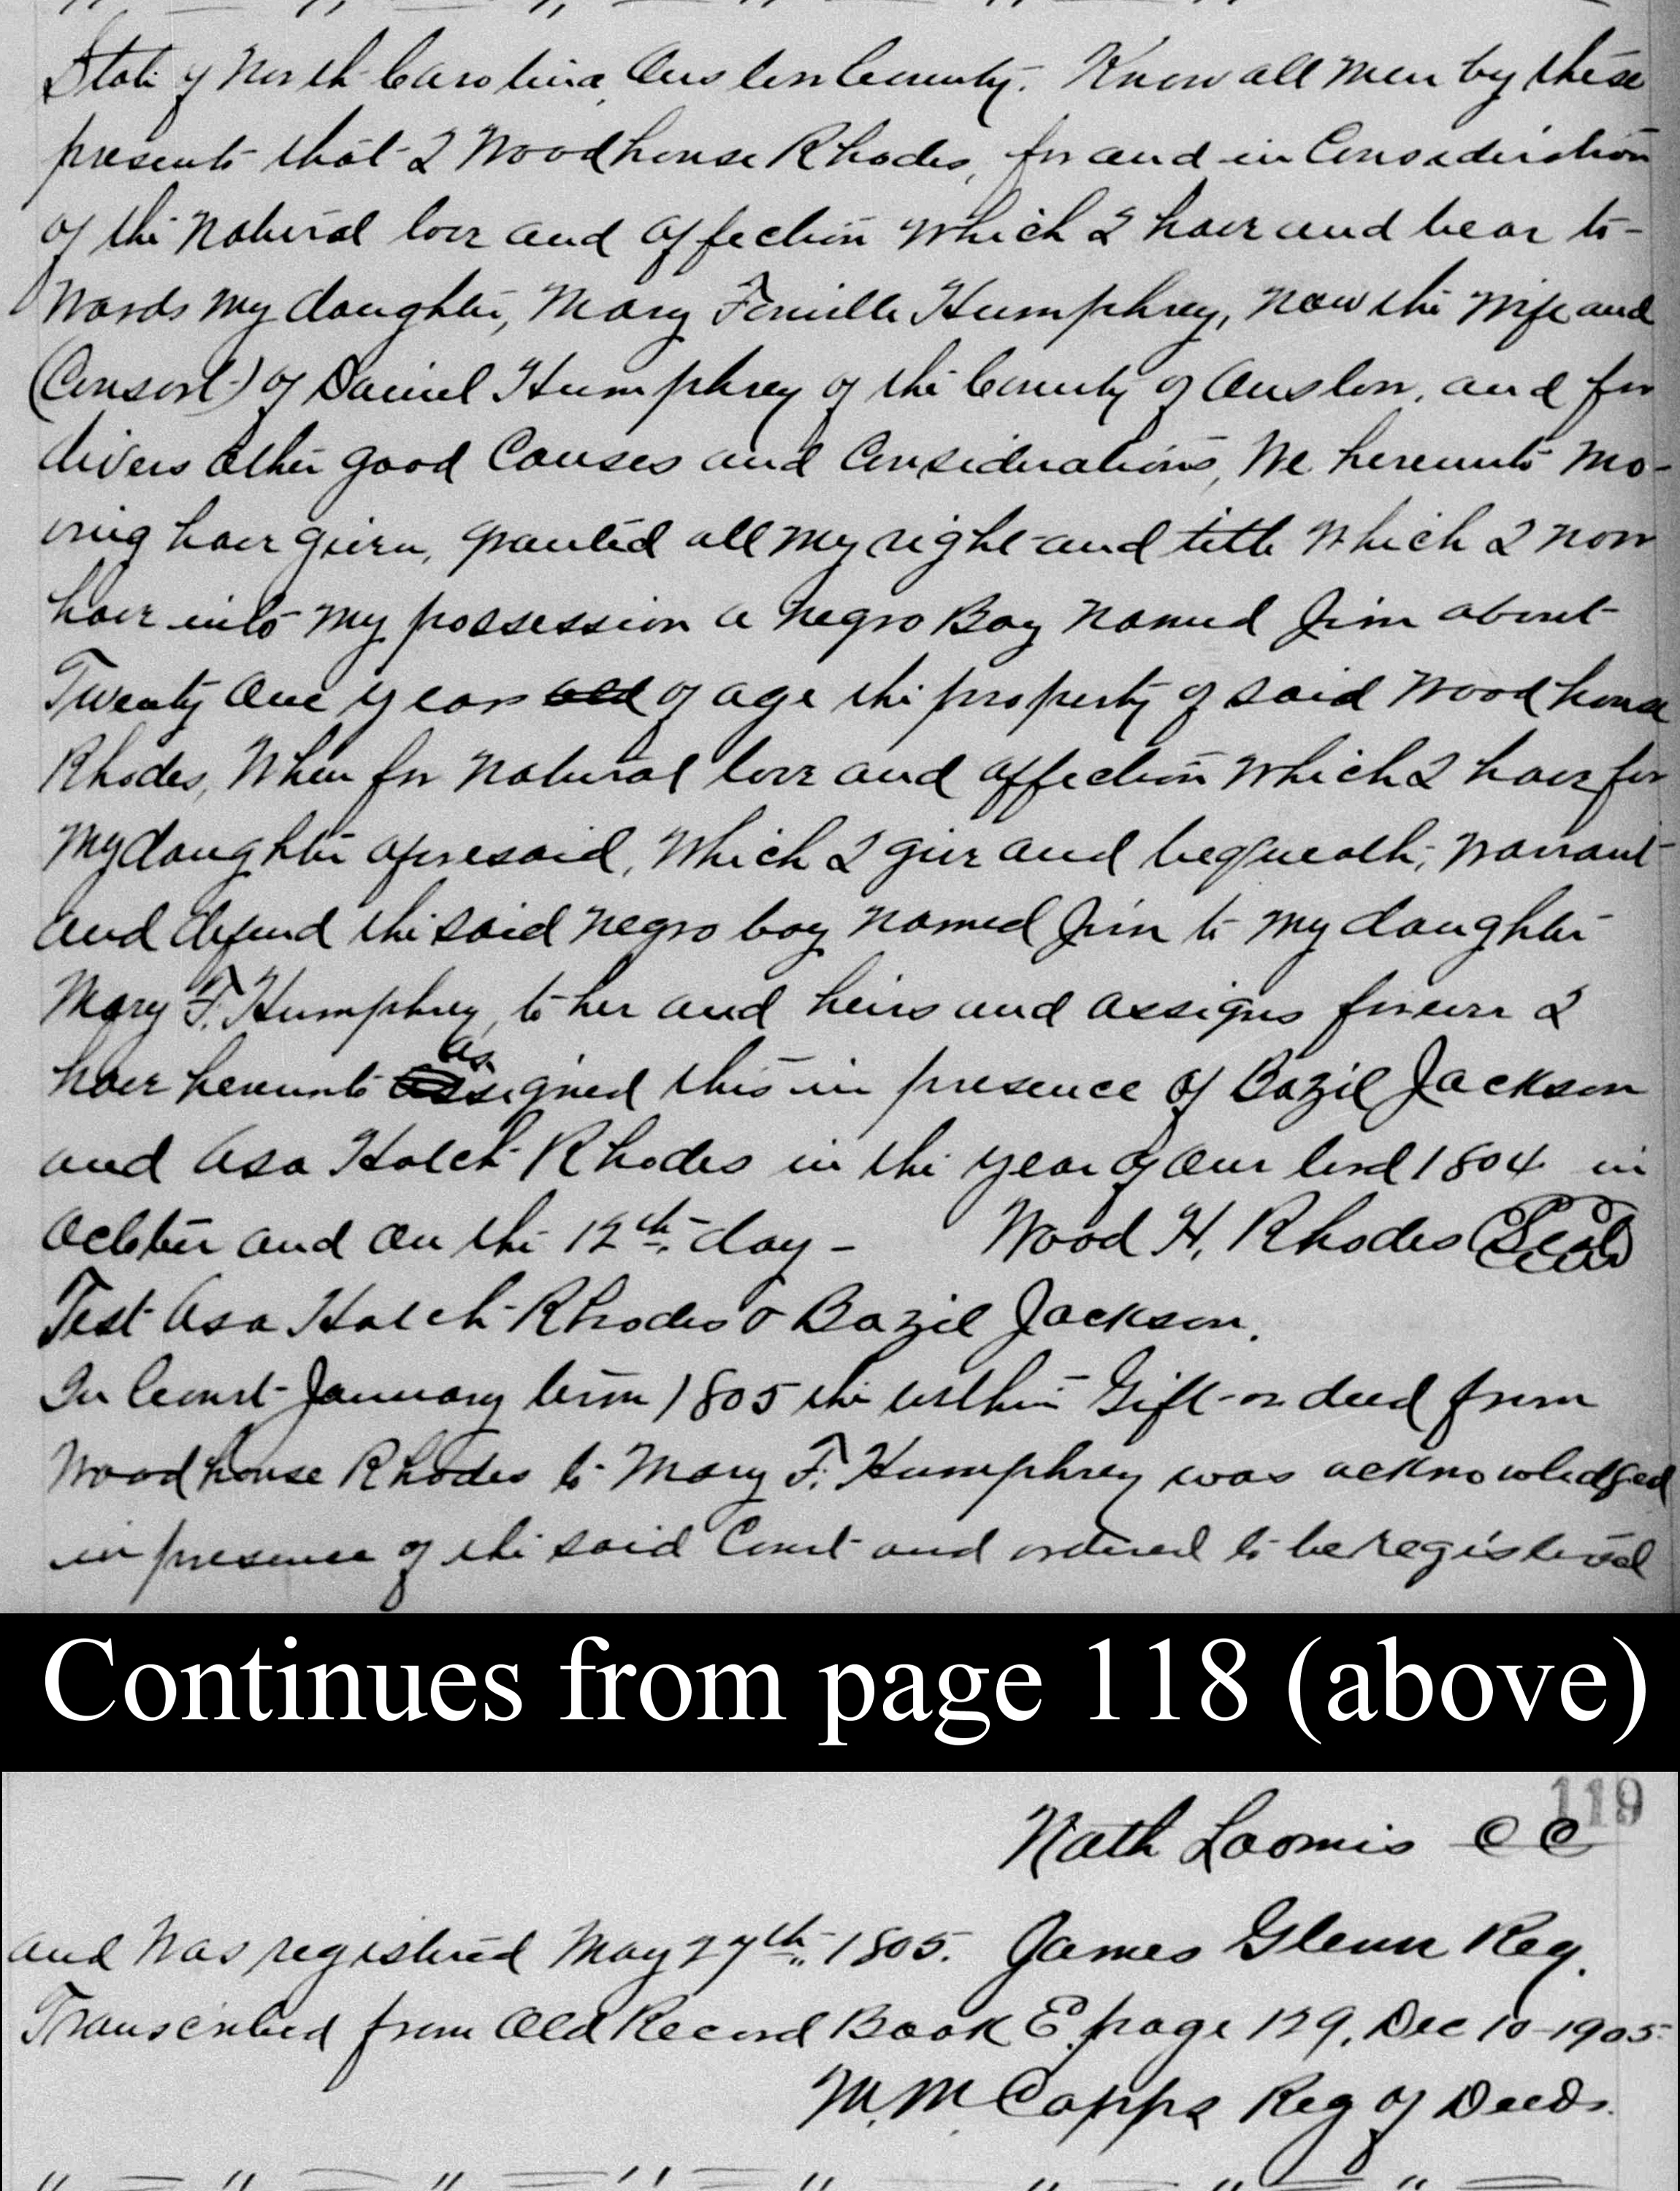 State of North Carolina, Onslon County. Know all men by these
presents that I Woodhouse Rhodes, for and in Consideration
of the natural love and affection which I have and bear to-
wards my daughter, Mary Humphrey, now the wife and
(Consort) of Daniel Humphrey of the County of Onslon, and for
divers other good Causes and Considerations, We hereunto mo-
ving have given, granted all my right and title which I now
have into my possession a negro Boy named Jim about
Twenty One years old of age the property of said Woodhouse
Rhodes, When for natural love and affection which I have for
my daughter aforesaid, which I give and bequeath, warrant
and defend the said negro boy named Jim to my daughter
Mary F. Humphrey, to her and heirs and assigns forever I
have hereunto assigned this in presence of Bazil Jackson
and Asa Hatch Rhodes in the year of our lord 1804 in
October and on the 12th day - Wood H. Rhodes (Seal)
Test Asa Hatch Rhodes & Bazil Jackson.
In Court January term 1805 the within Gift or deed from
Woodhouse Rhodes to Mary F. Humphrey was acknowledged
in presence of the said Court and ordered to be registered
Continues from page 118 (above)
119
Nath Loomis CC
and was registered May 27th 1805. James Glenn Reg.
Transcribed from Old Record Book E page 129, Dec 10-1905
M. M. Capps Reg of Deeds.